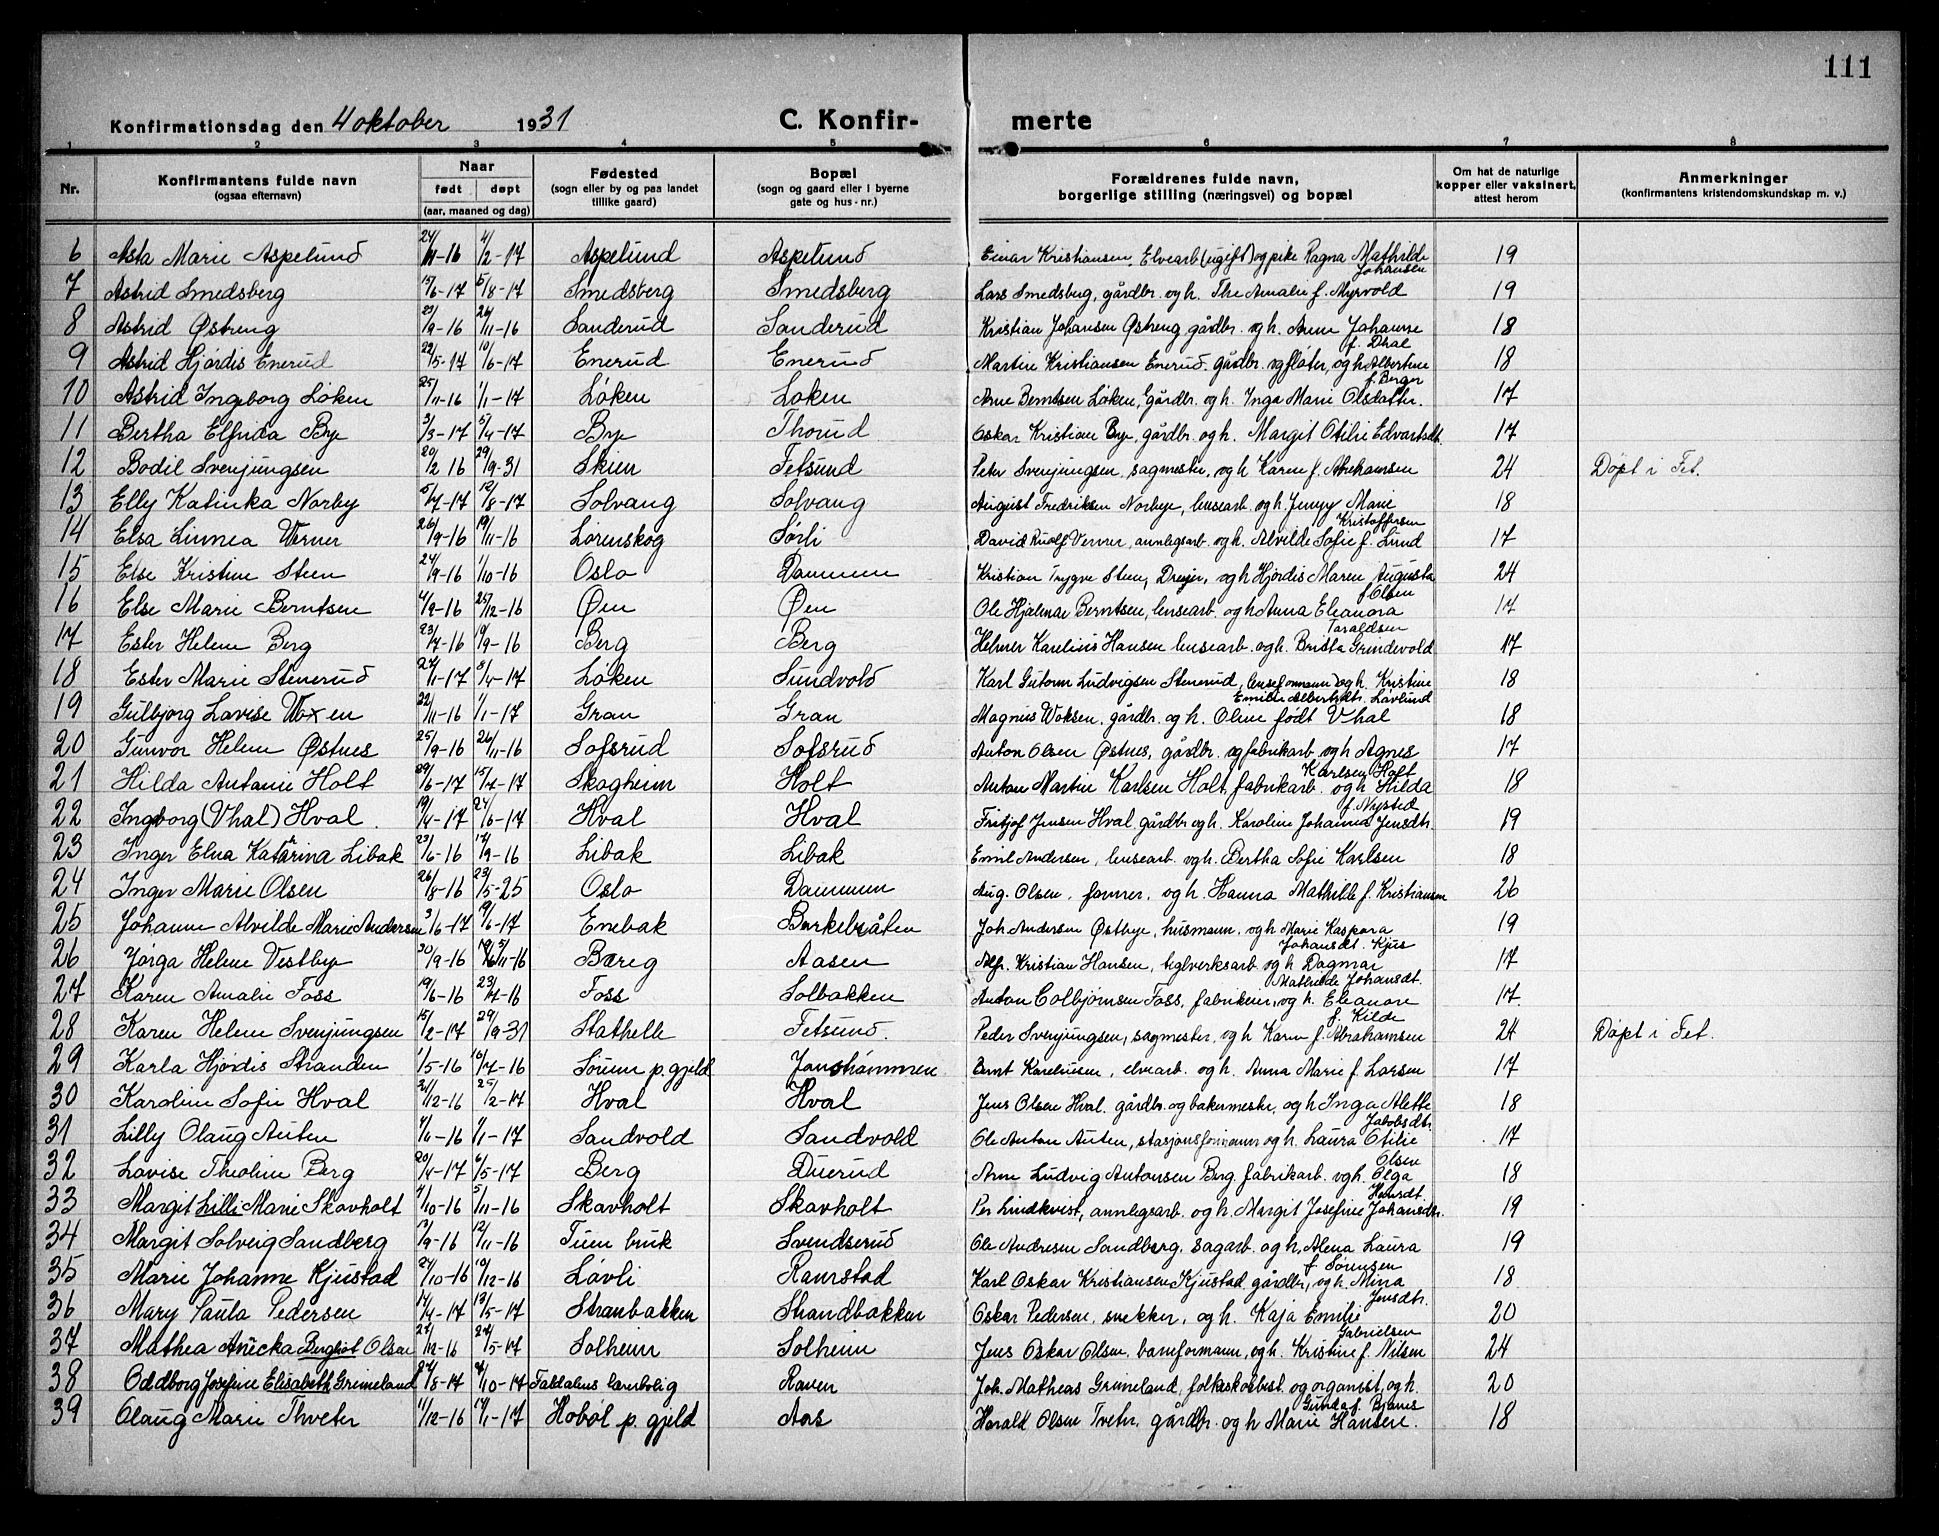 111
Konfirmationsdag den 4 oktober 1931 C. Konfir- merte
1 2 3 4 5 6 7 8
Nr. Konfirmantens fulde navn (ogsaa efternavn) Naar født døpt (aar, maaned og dag) Fødested (sogn eller by og paa landet tillike gaard) Bopæl (sogn og gaard eller i byerne gate og hus-nr.) Forældrenes fulde navn, borgerlige stilling (næringsvei) og bopæl Om hat de naturlige kopper eller vaksinert, attest herom Anmerkninger (konfirmantens kristendomskundskap m. v.)
6 Asta Marie Aspelund 24/11-16 4/2-17 Aspelund Aspelund Einar Kristiansen, Elvearb (ugift) og pike Ragna Mathilde Johansen 19
7 Astrid Smedsberg 15/6-17 5/8-17 Smedsberg Smedsberg Lars Smedsberg, gårdbr. og h. Thea Amalie f. Myrvold 19
8 Astrid Østreng /9-16 26/11-16 Sanderud Sanderud Kristian Johansen Østreng gårdbr. og h. Anna Johanne f. Dhal 18
9 Astrid Hjørdis Enerud 22/5-17 10/6-17 Enerud Enerud Martin Kristiansen Enerud gårdbr. og fløter, og h Albertine f. Berger 18
10 Astrid Ingeborg Løken 25/11-16 1/1-17 Løken Løken Arne Berntsen Løken, Gårdbr. og h. Inga Marie Olsdatter. 17
11 Bertha Elfrida Bye 3/3-17 5/4-17 Bye Thorud Oskar Kristian Bye, gårdbr. og h. Margit Otilie Edvartsdt. 17
12 Bodil Svenjungsen 20/2 16 29/9-31 Skien Fetsund Peter Svenjungsen, sagmester, og h Karen f. Abrahamsen 24 Døpt i Fet.
13 Elly Katinka Norby 5/7-17 12/8-17 Solvang Solvang August Fredriksen Norbye, lensearb. og h. Jenny Marie Kristoffersen 18
14 Elsa Linnea Werner 26/9-16 19/11-16 Lørenskog Sørli David Rudolf Verner, annlegsarb. og h. Alvilde Sofie f. Lund 17
15 Else Kristine Steen 24/9-16 1/10-16 Oslo Dammen Kristian Trygve Steen, Dreyer, og h Hjørdis Maren Augusta f Olsen 24
16 Else Marie Berntsen 4/9-16 25/12-16 Øen Øen Ole Hjalmar Berntsen, lensearb. og h Anna Eleanora Taraldsen 17
17 Ester Helene Berg 23/7-16 10/9-16 Berg Berg Helmer Karelius Hansen lensearb. og h. Brista Grindevold 17
18 Ester Marie Stenerud 27/1-17 8/4-17 Løken Sundvold Karl Gutorm Ludvigsen Stenerud, lenseformann) og h. Kristine Emilie Albertsdt. Løvlund 18
19 Gulbjørg Lovise Woxen 22/11-16 1/1-17 Gran Gran Magnus Woksen, gårdbr. og h. Oline født Vhal 18
20 Gunvor Helene Østnes 25/9-16 26/11-16 Sofsrud Sofsrud Anton Olsen Østnes, gårdbr. og fabrikarb. og h Agnes Karlsen Holt 17
21 Hilda Antonie Holt 29/6-17 15/7-17 Skogheim Holt Anton Martin Karlsen Holt, fabrikarb. og h Hilda f. Nysted 18
22 Ingeborg (Vhal) Hval 19/4-17 24/6-17 Hval Hval Fritjof Jensen Hval gårdbr og h. Karoline Johanna Jensdtr. 19
23 Inger Elna Katarina Libak 23/6-16 17/9-16 Libak Libak Emil Andersen, lensearb. og h. Bertha Sofie Karlsen 18
24 Inger Marie Olsen 26/8-16 23/5-25 Oslo Dammen Aug. Olsen, former, og h. Hanna Mathilde f. Kristiansen 26
25 Johanne Alvilde Marie Andersen 3/6-17 19/6-17 Enebak Børkebråten Joh. Andersen Østbye, husmann, og h Marie Kaspara Johansdt. Kjus 19
26 Jørga Helene Vestby 30/9-16 5/11-16 Bæreg Aasen Alfr. Kristian Hansen, teglverksarb. og h Dagmar Mathilde Johansdt. 17
27 Karen Amalie Foss 19/6-16 23/7-16 Foss Solbakken Anton Colbjørnsen Foss, fabrikeier, og h. Eleanore f. Kilde 17
28 Karen Helene Svenjungsen 15/2-17 29/9-31 Stathelle Fetsund. Peder Svenjungsen, sagmester, og h Karen f. Abrahamsen 24 Døpt i Fet.
29 Karla Hjørdis Stranden 1/5-16 16/7-16 Sørum p. gjeld Jonshammeren Bernt Kareliusen, elvearb. og h. Anna Marie f. Larsen 17
30 Karoline Sofie Hval 31/12-16 25/2-17 Hval Hval Jens Olsen Hval, gårdbr. og bakermester, og h Inga Alette Jakobsdtr. 18
31 Lilly Olaug Auten 4/11-16 1/1-17 Sandvold Sandvold Ole Anton Auten, stasjonsformann og h. Laura Otilie Olsen 17
32 Lovise Theoline Berg 20/4-17 6/5-17 Berg Duerud Arne Ludvig Antonsen Berg, fabrikarb. og h. Olga Hansdt. 18
33 Margit Lilli Marie Skavholt 4/10-16 5/11-16 Skavholt Skavholt Per Lindkvist, annlegsarb. og h. Margit Josefine Johansdtr. 19
34 Margit Solveig Sandberg /9-16 12/11-16 Tuen bruk Svendserud Ole Andresen Sandberg, sagarb. og h. Alena Laura f Sørensen 19
35 Marie Johanne Kjustad 24/10-16 10/12-16 Løvli Ramstad Karl Oskar Kristiansen Kjustad gårdbr., og h. Mina Jensdtr. 18
36 Mary Paula Pedersen 14/4-17 13/5-17 Stranbakken Strandbakken Oskar Pedersen, snekker, og h. Kaja Emilie Gabrielsen 20
37 Mathea Anecka Bergliot Olsen 27/12-16 27/5-17 Solheim Solheim Jens Oskar Olsen, baneformann, og h. Kristine f. Nilsen 24
38 Oddborg Josefine Elisabeth Grimeland 27/8-17 /10-17 Faldalens lærebolig Raven Joh. Mathias Grimeland, folkeskolbest. og organist, og h. Gunda f. Bjanes 20
39 Olaug Marie Thveter 11/12-16 14/1-17 Hobøl p. gjeld Aas Harald Olsen Tveter, gårdbr. og h Marie Hansen. 18